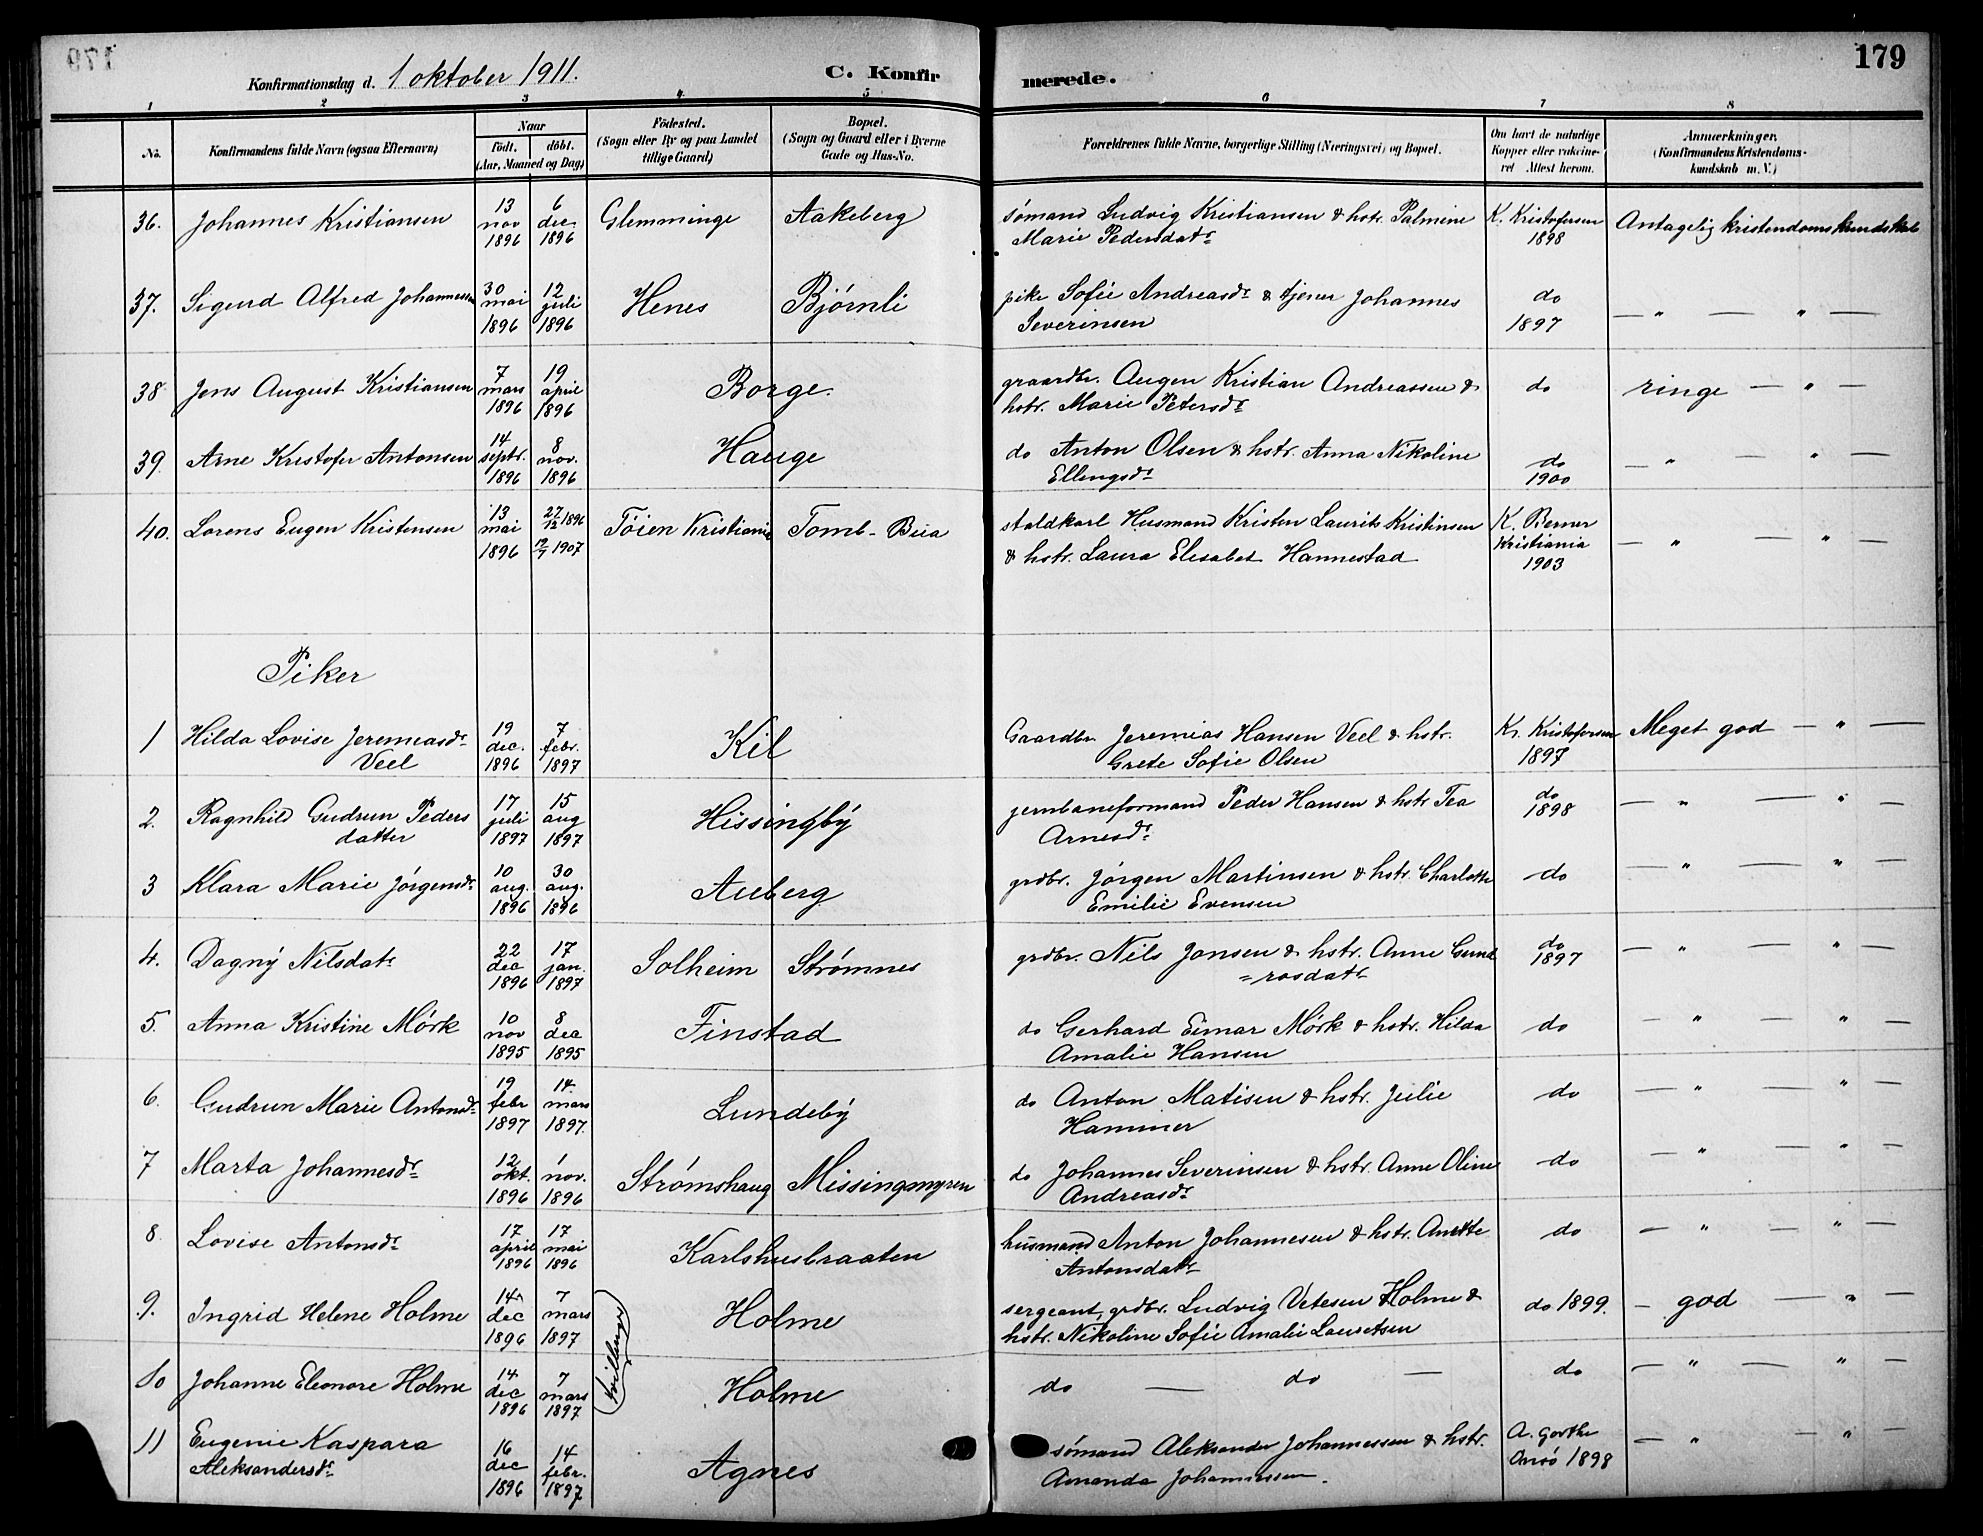 179
Konfirmationsdag d. 1 oktober 1911.
C. Konfirmerede.
1 2 3 4 5 6 7 8
No.
Konfirmandens fulde Navn (ogsaa Efternavn)
Naar
födt. döbt.
(Aar, Maaned og Dag)
Födested.
(Sogn eller By og paa Landet
tillige Gaard)
Bopæl.
(Sogn og Gaard eller i Byerne
Gade og Hus-No.
Forældrenes fulde Navne, borgerlige Stilling (Næringsvei) og Bopæl.
Om havt de naturlige
Kopper eller vakcine-
ret Attest herom.
Anmærkninger,
(Konfirmandens Kristendoms-
kundskab m. V.)
36. Johannes Kristiansen 13 nov 1896 6 dec. 1896 Glemminge Aakeberg sømand Ludvig Kristiansen & hstr. Palmine K. Kristofersen Antagelig kristendomskundskab
Marie Pedersdatr 1898
37. Sigurd Alfred Johannessen 30 mai 1896 12 juli 1896 Henes Bjørnli pike Sofie Andreasdr & tjener Johannes do — " — " —
Severinsen 1897
38 Jens August Kristiansen 7 mars 1896 19 april 1896 Borge. graardbr. Augen Kristian Andreassen & do ringe — " —
hstr. Marie Petersdr
39. Arne Kristofer Antonsen 14 septr. 1896 8 nov. 1896 Hauge do Anton Olsen & hstr. Anna Nikoline do — " — " —
Ellingsdr 1900
40. Lorens Eugen Kristensen 13 mai 1896 27/12 1896 Töien Kristiania Tomb-Bua staldkarl Husmand Kristen Laurits Kristinsen K. Berner — " — " —
1907 & hstr. Laura Elisabet Hannestad Kristiania
1903
Piker
1 Hilda Lovise Jeremeasdr 19 dec. 1896 7 febr. 1897 Kil Gaardbr Jeremias Hansen Veel & hstr. Kr. Kristofersen Meget god — " —
Veel Grete Sofie Olsen 1897
2. Ragnhild Gudrun Peders 17 juli 1897 15 aug 1897 Hissingby jernbaneformand Peder Hansen & hstr Tea do — " — " —
datter Arnesdr 1898
3 Klara Marie Jørgensdr 10 aug. 1896 30 aug. 1896 Auberg grdbr. Jørgen Martinsen & hstr. Charlotte do — " — " —
Emilie Evensen
4. Dagny Nilsdatr 22 dec 1896 17 jan. 1897 Solheim Strømnes grdbr. Nils Jonsen & hstr. Anne Gund do — " — " —
= rosdatr 1897
5. Anna Kristine Mörk 10 nov 1895 8 dec 1895 Finstad do Gerhard Eimar Mörk & hstr. Hilda do — " — " —
Amalie Hansen
6. Gudrun Marie Antonsdr 19 febr 1897 14. mars 1897. Lundeby do Anton Matisen & hstr. Julie do — " — " —
Hammer
7 Marta Johannesdr 12 okt. 1896 1 nov. 1896 Strømshaug Missingmyren do Johannes Severinsen & hstr. Anne Oline do — " — " —
Andreasdr
8. Lovise Antonsdr 17 april 1896 17 mai 1896 Karlshusbraaten husmand Anton Johannesen & hstr. Anette do — " — " —
Antonsdatr
9. Ingrid Helene Holme 14 dec 1896 7 mars 1897 Holme sergeant, grdbr. Ludvig Holme & do 1899. — god — " —
hstr. Nikoline Sofie Amalie Lauretsen
tvillinger
10 Johanne Eleonore Holme 14 dec 1896 7 mars 1897 Holme do — do — do — " — " —
11 Eugenie Kaspara 16 dec 1896 14 febr. 1897 Agnes sømand Aleksander Johannessen & hstr. A. — " — " —
Aleksandersdr Amanda Johannessen. Onsö 1898